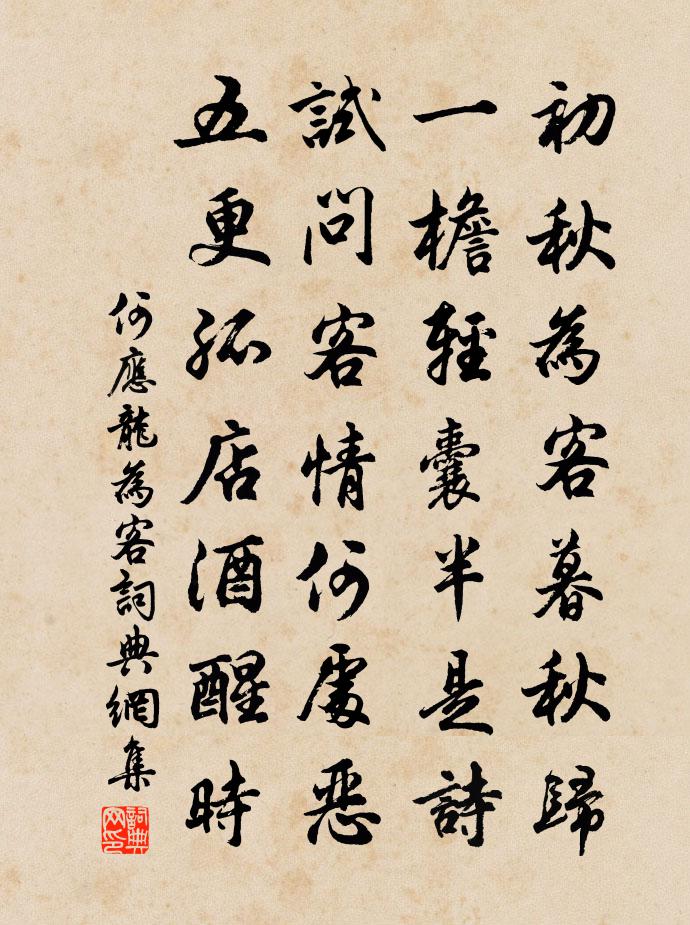 初秋為客暮秋歸
一檐輕囊半是詩
試問客情何處惡
五更孤店酒醒時
何應龍為客詞典網集
詞典网印